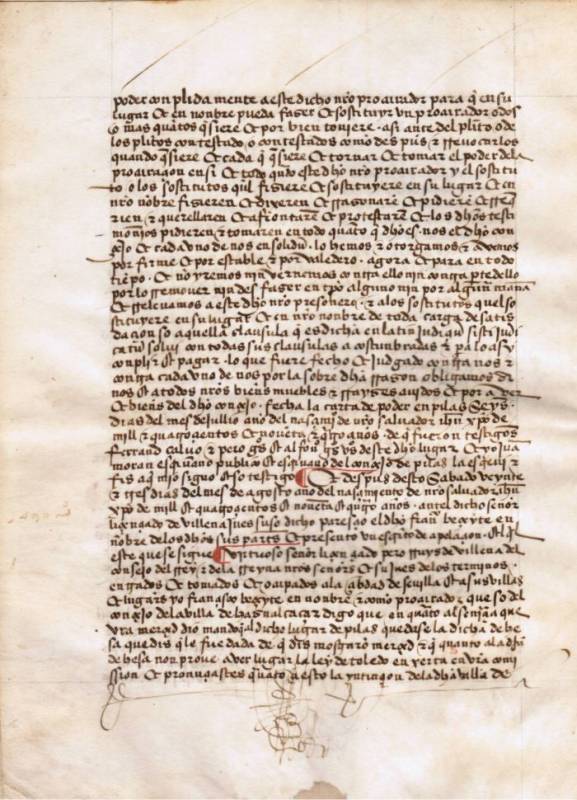 poder conplida mente a este dicho nro procurador para q en su
lugar Et en nonbre pueda faser Et sostituyr un procurador o dos
o mas quatos q siere Et por bien toviere . asi ante del plito o de
los plitos contestado o contestados como despues Et rrevocarlos
quando q siere Et cada q q siere Et tornar Et tomar el poder dela
procuraçion en si Et todo quato este dho nro procurador y el sostitu
to o los sostitutos quel fisiere Et sostituyere en su lugar Et en
nro nobre fisieren Et dixeren Et rrasonare Et pidiere Et
Et querellaren Et afrontare Et protestare Et los dhos testi
monios pidieren Et tomaren en todo quato q dho es . nos el dho con
çejo Et cada vno de nos en solidu . lo hemos Et otorgamos Et avemos
por firme Et por estable Et por valedero . agora Et para en todo
tienpo . Et no yremos nin vernemos contra ello nin contra parte dello
por lo rremover nin desfaser en tpo alguno nin por alguna maña
Et rrelevamos a este dho nro presonero . Et a los sostitutos quel so
stituyere en su lugar Et en nro nonbre de toda carga de satis
daçion so aquella clausula q es dicha en latin judiçiu sisti judi
catu solui con todas sus clausulas acostunbradas Et pa lo asy
conplir Et pagar . lo que fuere fecho Et judgado contra nos Et
contra cada vno de nos por la sobre dha rrason obligamos a
nos Et a todos nros bienes muebles Et rrayses avidos Et por aver
Et bienes del dho conçejo . fecha la carta de poder en pilas seys .
dias del mes de jullio año del nasçimi de nro salvador ihu xpo de
mill Et quatroçentos Et noveta Et quatro años . de q fueron testigos
ferrand calvo Et pero gs Et alfon gs vos deste dho lugar Et yo jua
moran escriuano publico Et escriuano del conçejo de pilas la escreui Et
fis aq mio signo Et so testigo Et despues desto sabado veynte
Et tres dias del mes de agosto año del nasçimiento de nro salvador ihu
xpo de mill Et quatroçentos Et noveta Et quatro años . ante dicho señor
liçençiado de villena jues suso dicho paresçio el dho fran beçyte en
nobre de los dhos sus partes Et presento vn escrito de apelaçion . Et q
este que se sigue virtuoso señor liçençiado pero rruys de villena del
consejo del rrey Et dela rreyna nros señores Et su jues de los terminos .
entrados Et tomados Et ocupados ala çibdad de sevilla Et a sus villas
Et lugares yo françisco beçyte en nonbre Et como procurador que so del
conçejo dela villa de haçnalcaçar digo que en quato al señia que
vra merçed dio mando q al dicho lugar de pilas quedase la dicha dehe
sa que dis q le fue dada de q dis mostraro merçed Et q quanto a la dha
dehesa non prove aver lugar la ley de toledo en yerta en vra comi
ssion Et pronuçiastes quato a esto la yntinçion dela dha villa de